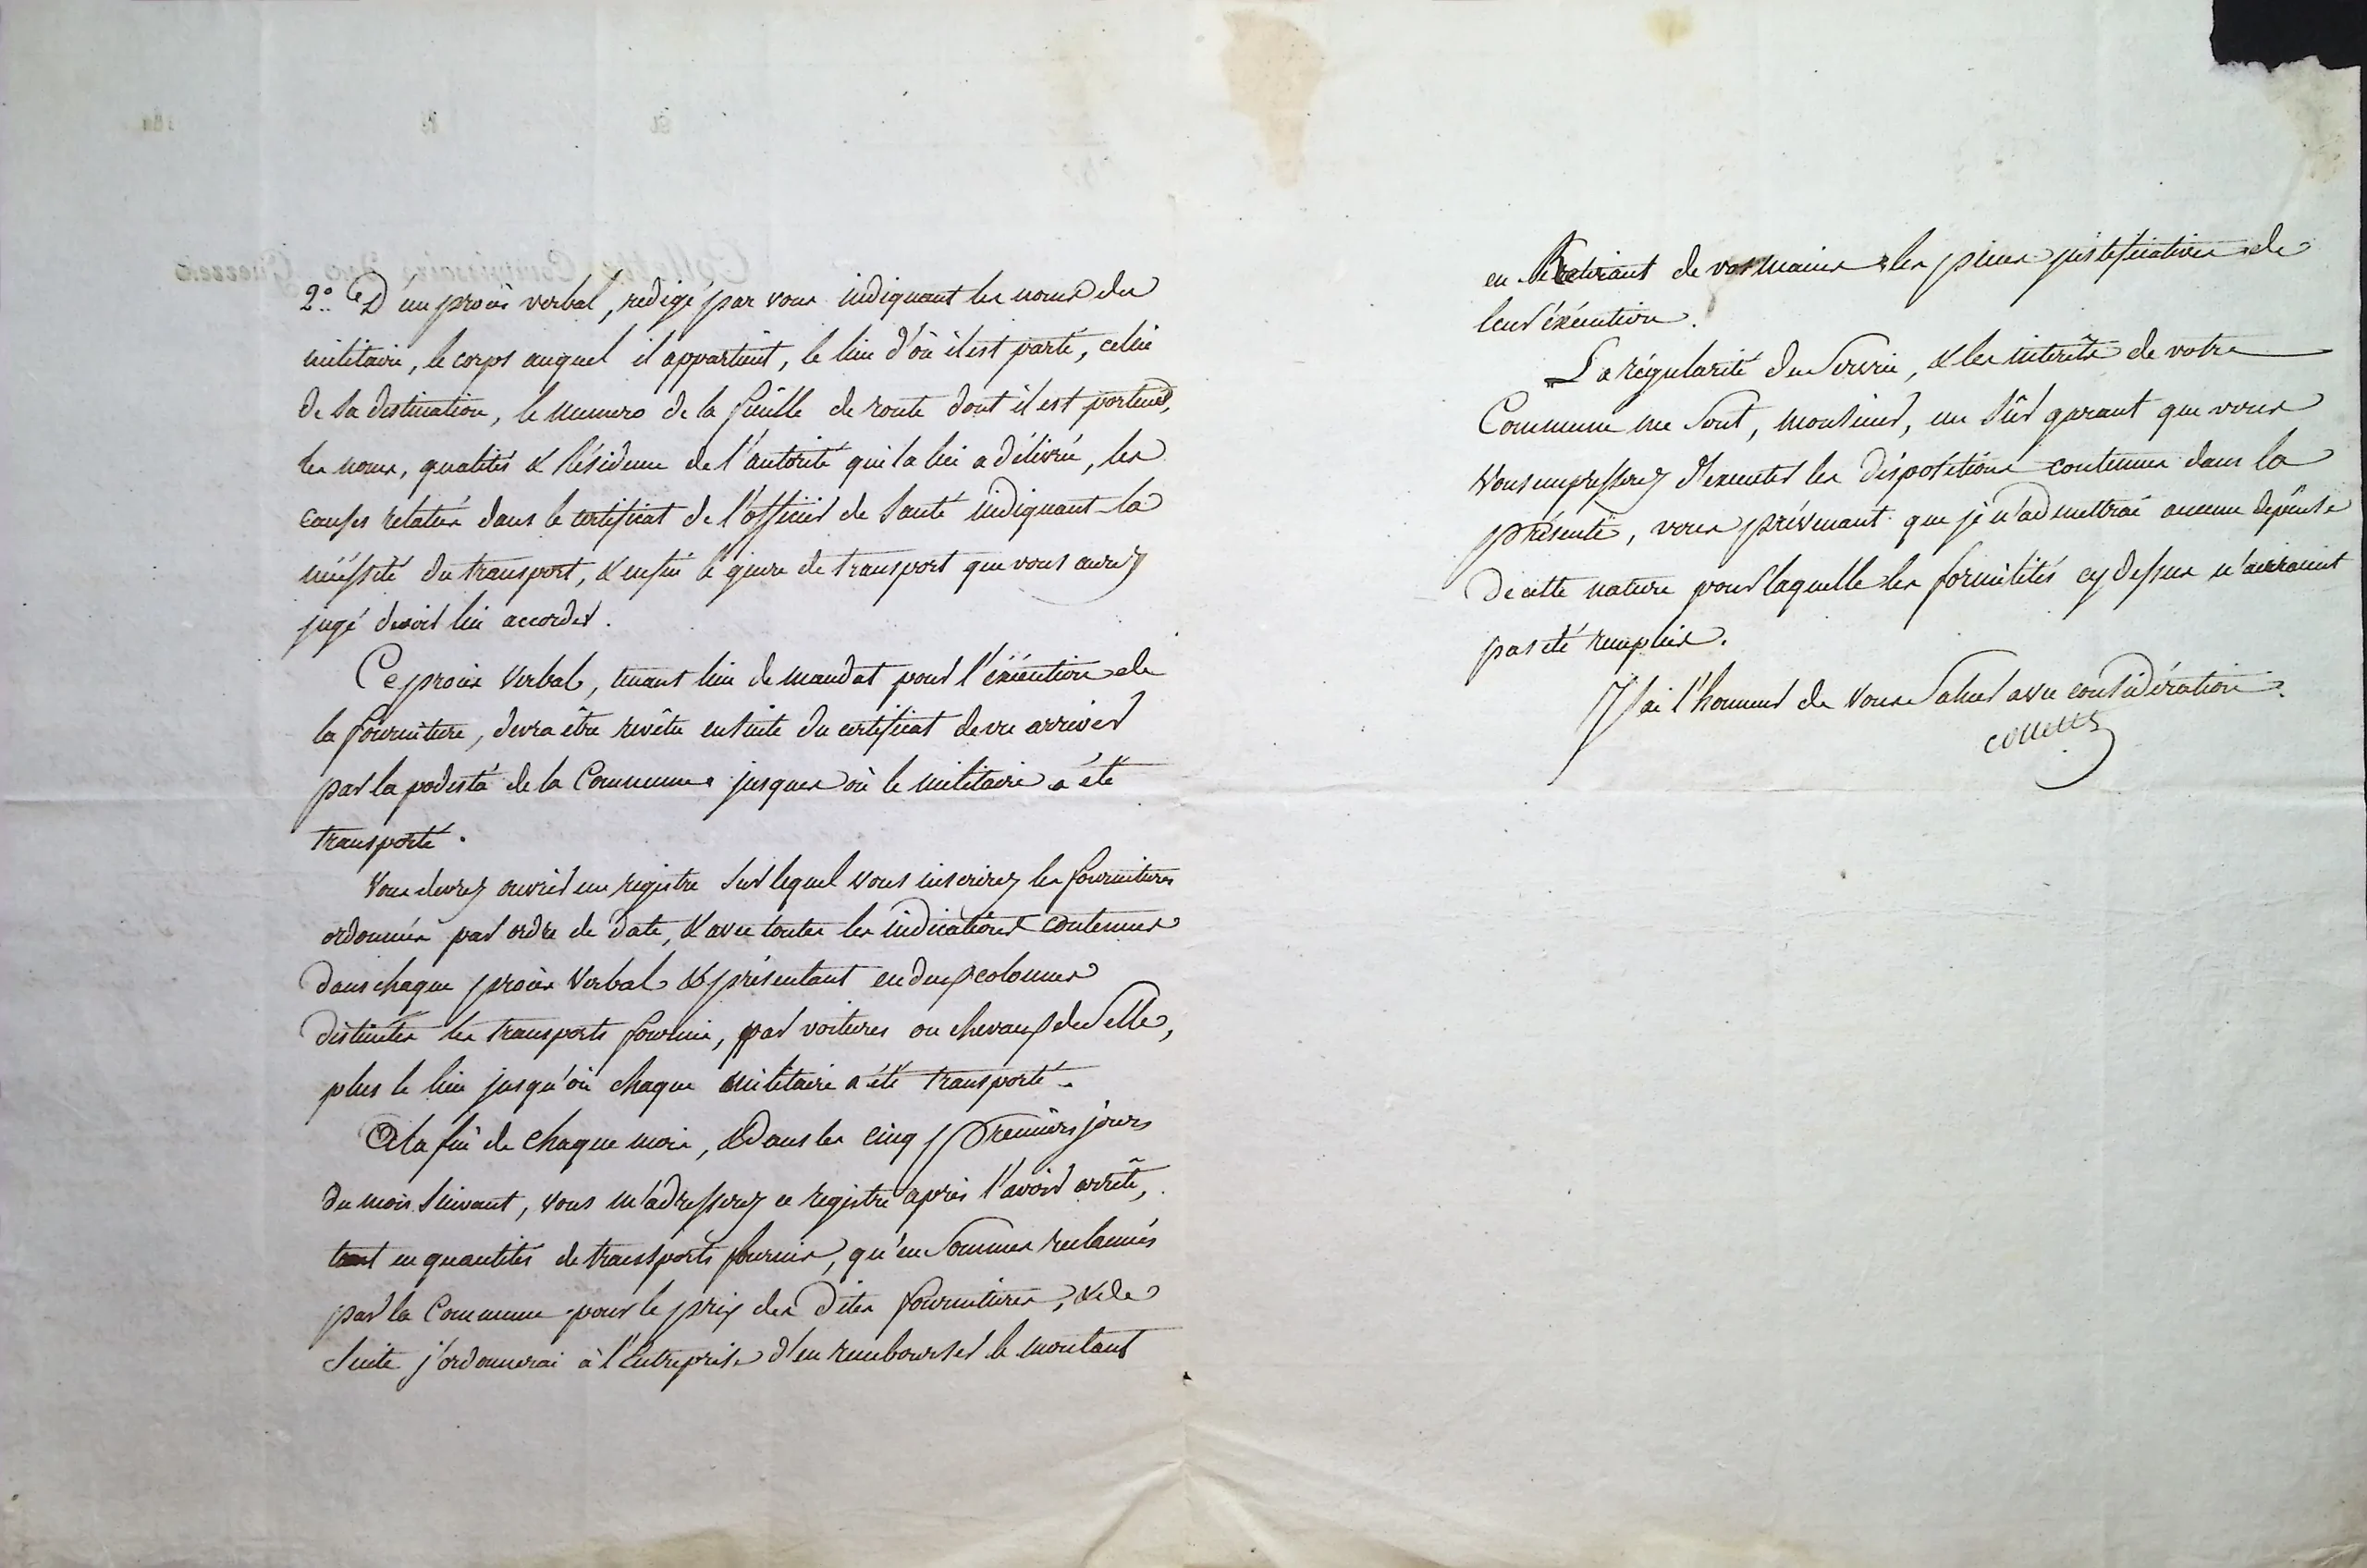 2.º D'un procès verbal, redigé par vous indiquant les noms du
militaire, le corps auquel il appartient, le lieu d'où il est parti, celui
de sa destination, le numero de la feuille de route dont il est porteur,
les noms, qualités & résidence de l'autorité qui la lui a délivré, les
causes relatées dans le certificat de l'officier de santé indiquant la
nécessité du transport, & enfin le genre de transport que vous aurez
jugé devoir lui accorder.
Ce procès verbal, tenant lieu de mandat pour l'éxécution de
la fourniture, devra être revêtu ensuite du certificat de vu arriver
par la podesta de la Commune jusques où le militaire a été
transporté.
Vous devrez ouvrir un registre sur lequel vous inscrirez les fournitures
ordonnées par ordre de date, & avec toutes les indications contenues
dans chaque procès verbal & présentant en deux colonnes
distinctes les transports fournis, par voitures ou chevaux de selle,
plus le lieu jusqu'où chaque militaire a été transporté.
A la fin de chaque mois, & dans les cinq premiers jours
du mois suivant, vous m'adresserez ce registre après l'avoir arrêté,
tant en quantités de transports fournis, qu'en sommes réclamés
par la Commune pour le prix des dites fournitures, & de
suite j'ordonnerai à l'Entreprise d'en rembourser le montant
en retirant de vos mains les pièces justificatives de
leur éxécution.
La régularité du service, & les interêts de votre
Commune me sont, monsieur, un sûr garant que vous
vous empresserez d'executer les dispositions contenues dans la
présente, vous prévenant que je n'admettrai aucune dépense
de cette nature pour laquelle les formalités cy dessus n'auraient
pas été remplies.
J'ai l'honneur de vous saluer avec considération.
Collette